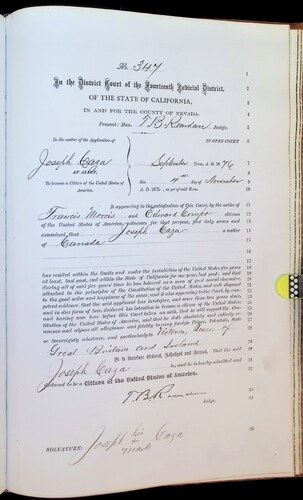 No. 347
In the District Court of the Fourteenth Judicial District,
OF THE STATE OF CALIFORNIA,
IN AND FOR THE COUNTY OF NEVADA.
Present: Hon. T. B. Reardan Judge.
In the matter of the Application of
IN OPEN COURT
Joseph Caza
AN ALIEN,
September Term, A. D. 1876
To become a Citizen of the United States of America.
this 4th day of November
A. D. 1876
It appearing to the satisfaction of this Court, by the oaths of
Francis Morris and Edward citizens
of the United States of America, witnesses for that purpose, first duly sworn and
examined, that Joseph Caza a native
of Canada
has resided within the limits and under the jurisdiction of the United States five years
at least, last past, and within the State of California for one year last past; and that
during all of said five years' time he has behaved as a man of good moral character,
attached to the principles of the Constitution of the United States, and well disposed
to the good order and happiness of the same; and it also appearing to the Court, by com-
petent evidence, that the said applicant has heretofore, and more than two years since
and in due form of law, declared his intention to become a citizen of the United States
and having now here before this Court taken an oath, that he will support the Consti-
tution of the United States of America, and that he doth absolutely and entirely re-
nounce and abjure all allegiance and fidelity to every foreign Prince, Potentate, State
or Sovereignty whatever, and particularly to Victoria, Queen of
Great Britain and Ireland
It is therefore Ordered, Adjudged and Decreed, That the said
Joseph Caza be, and he is hereby admitted and
declared to be a Citizen of the United States of America.
T. B. Reardan
Judge.
SIGNATURE: Joseph his x mark Caza